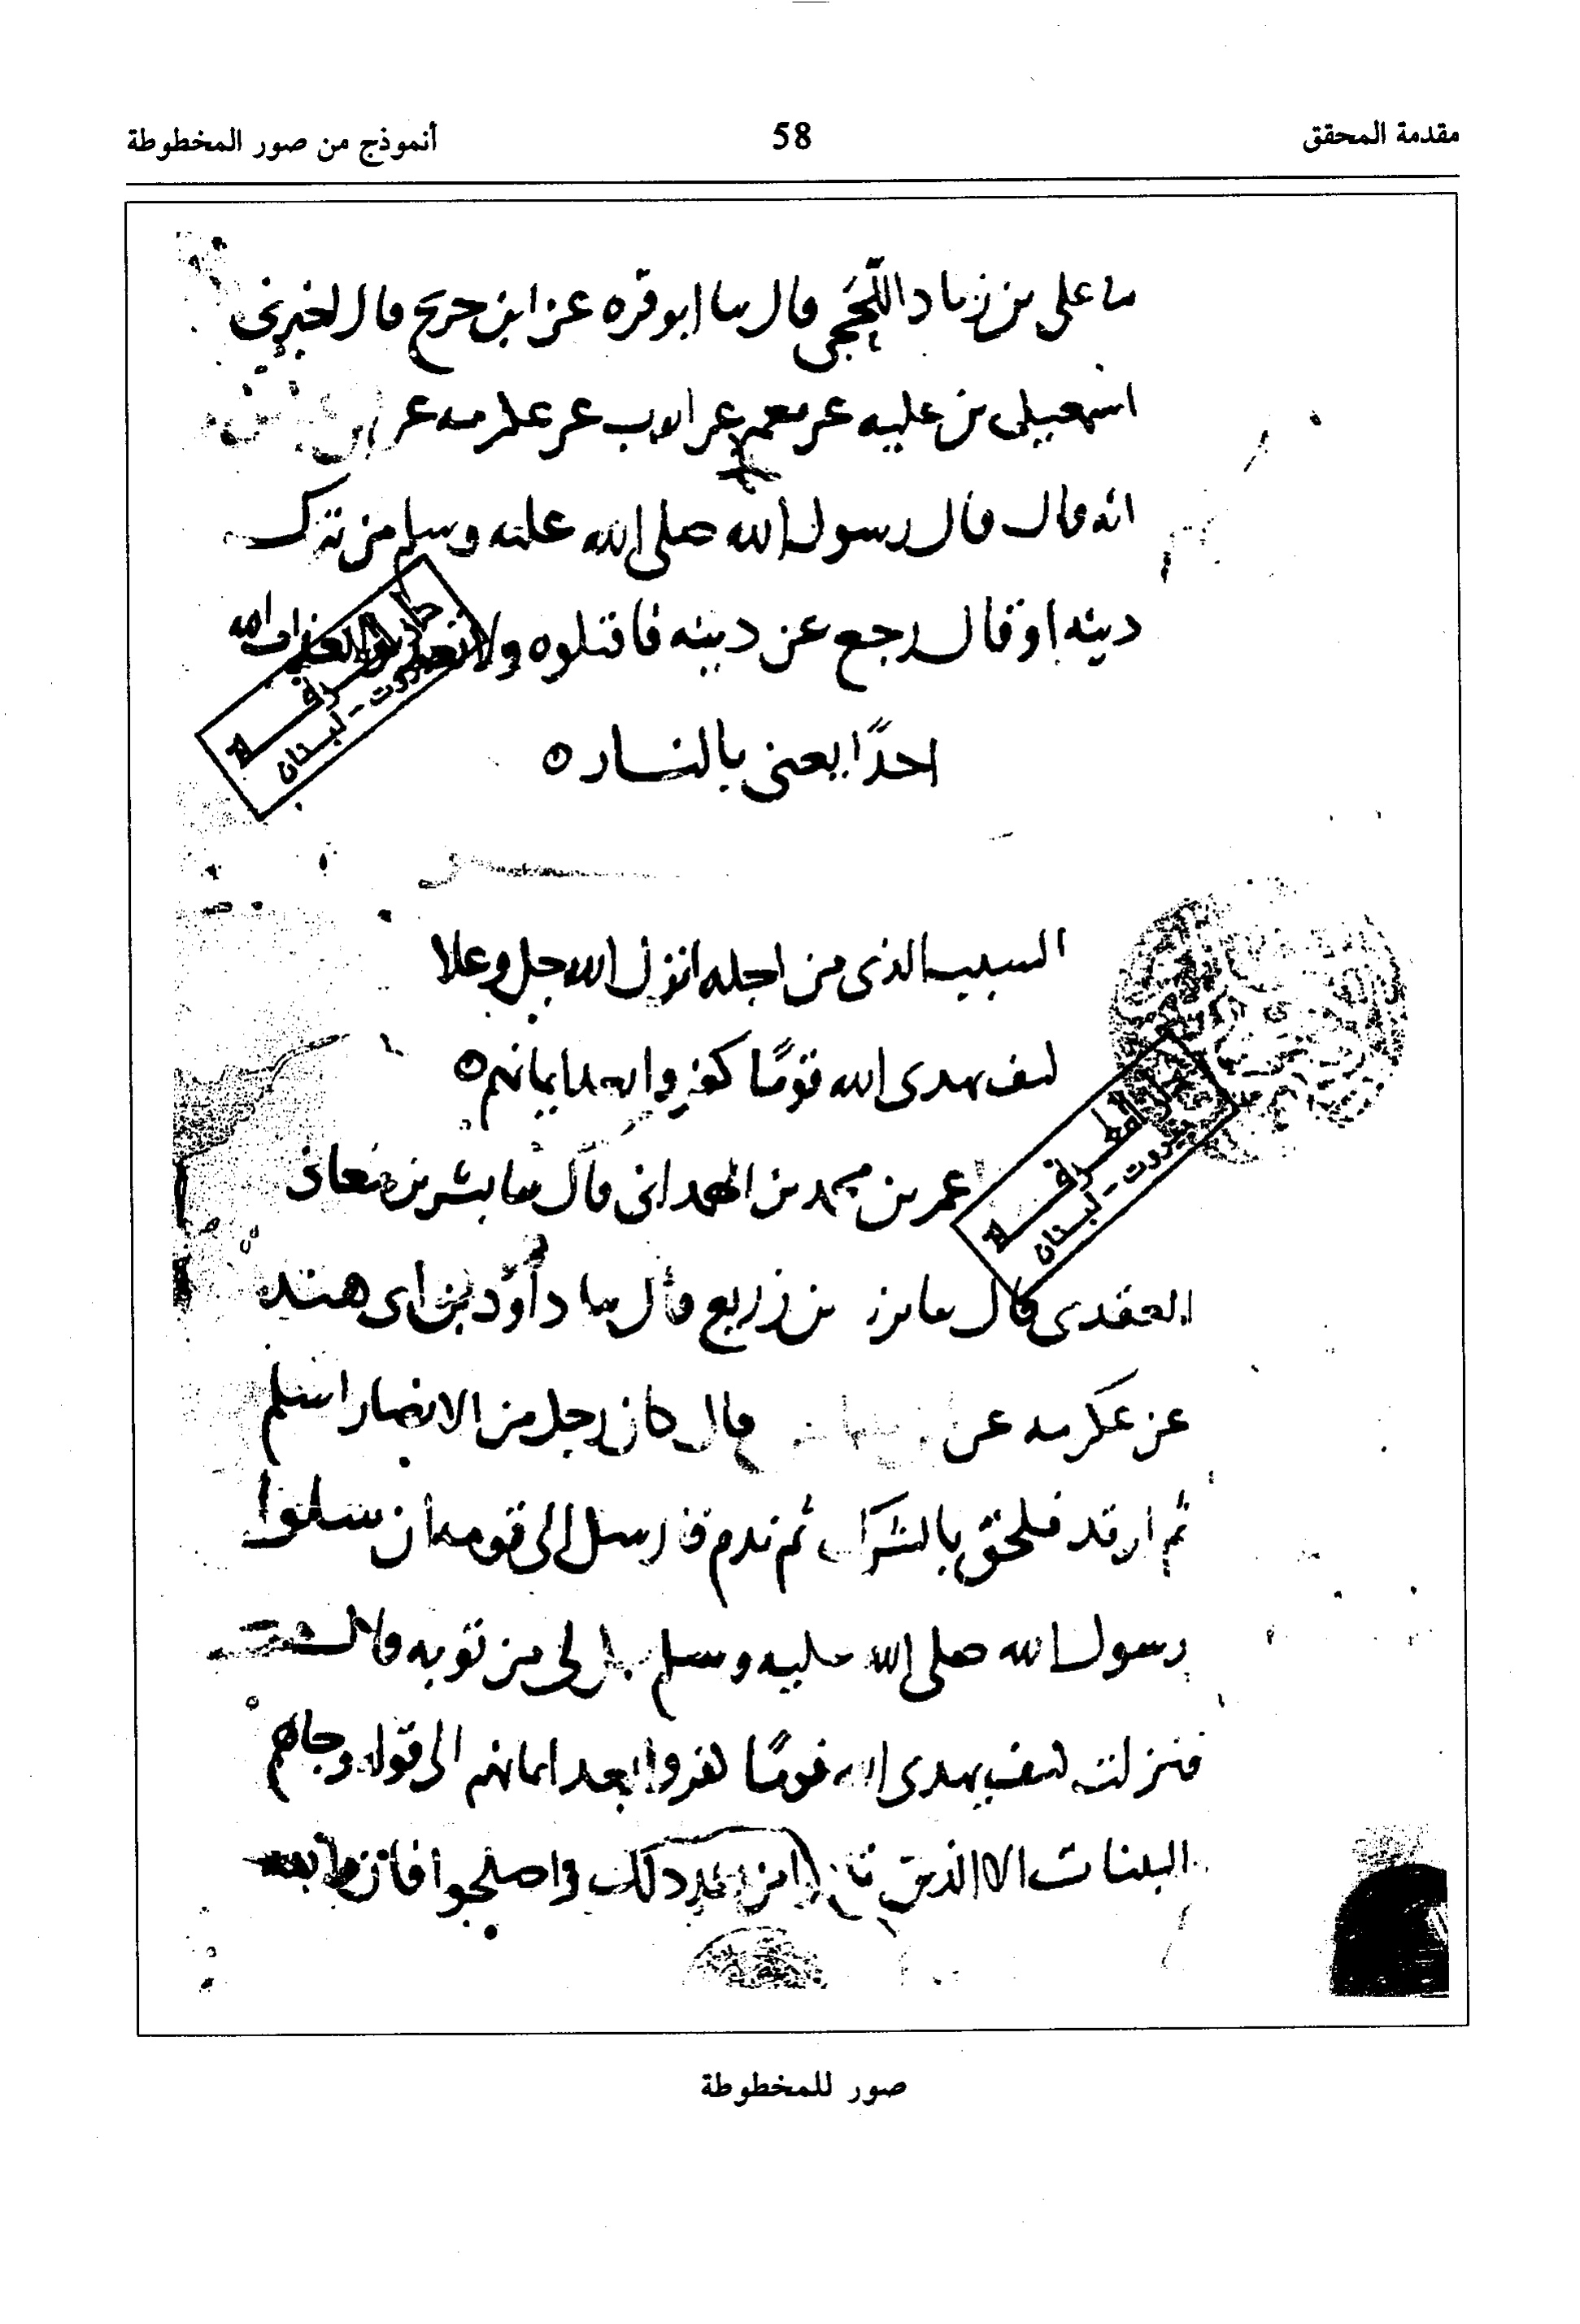 مقدمة المحقق 58 أنموذج من صور المخطوطة
ما على بن زياد اللَّحْجى قال سا ابو قره عن ابن جريج قال اخبرنى
اسمعيل بن عليه عن معمر عن ايوب عن عكرمه عن ابن
انه قال قال رسول الله صلى الله عليه وسلم من ترك
دينه او قال رجع عن دينه فاقتلوه ولا تعذبوا بعذاب الله
احدًا يعنى بالنار ه
السبب الذى من اجله انزل الله جل وعلا
كيف يهدى الله قومًا كفروا بعد ايمانهم ه
عمر بن محمد بن الهمدانى قال ثنا بشر بن معاذ
العقدى قال بن زريع قال سا داود بن ابى هند
عن عكرمه عن قال كان رجل من الانصار اسلم
ثم ارتد فلحق بالشرك ثم ندم فارسل الى قومه ان سلوا
رسول الله صلى الله عليه وسلم هل لى من توبه قال
فنزلت كيف يهدى الله قومًا كفروا بعد ايمانهم الى قوله وجاهم
البينات الا الذين تابوا من بعد ذلك واصلحوا فان
دار المعرفة
بيروت - لبنان
دار المعرفة
بيروت - لبنان
صور للمخطوطة